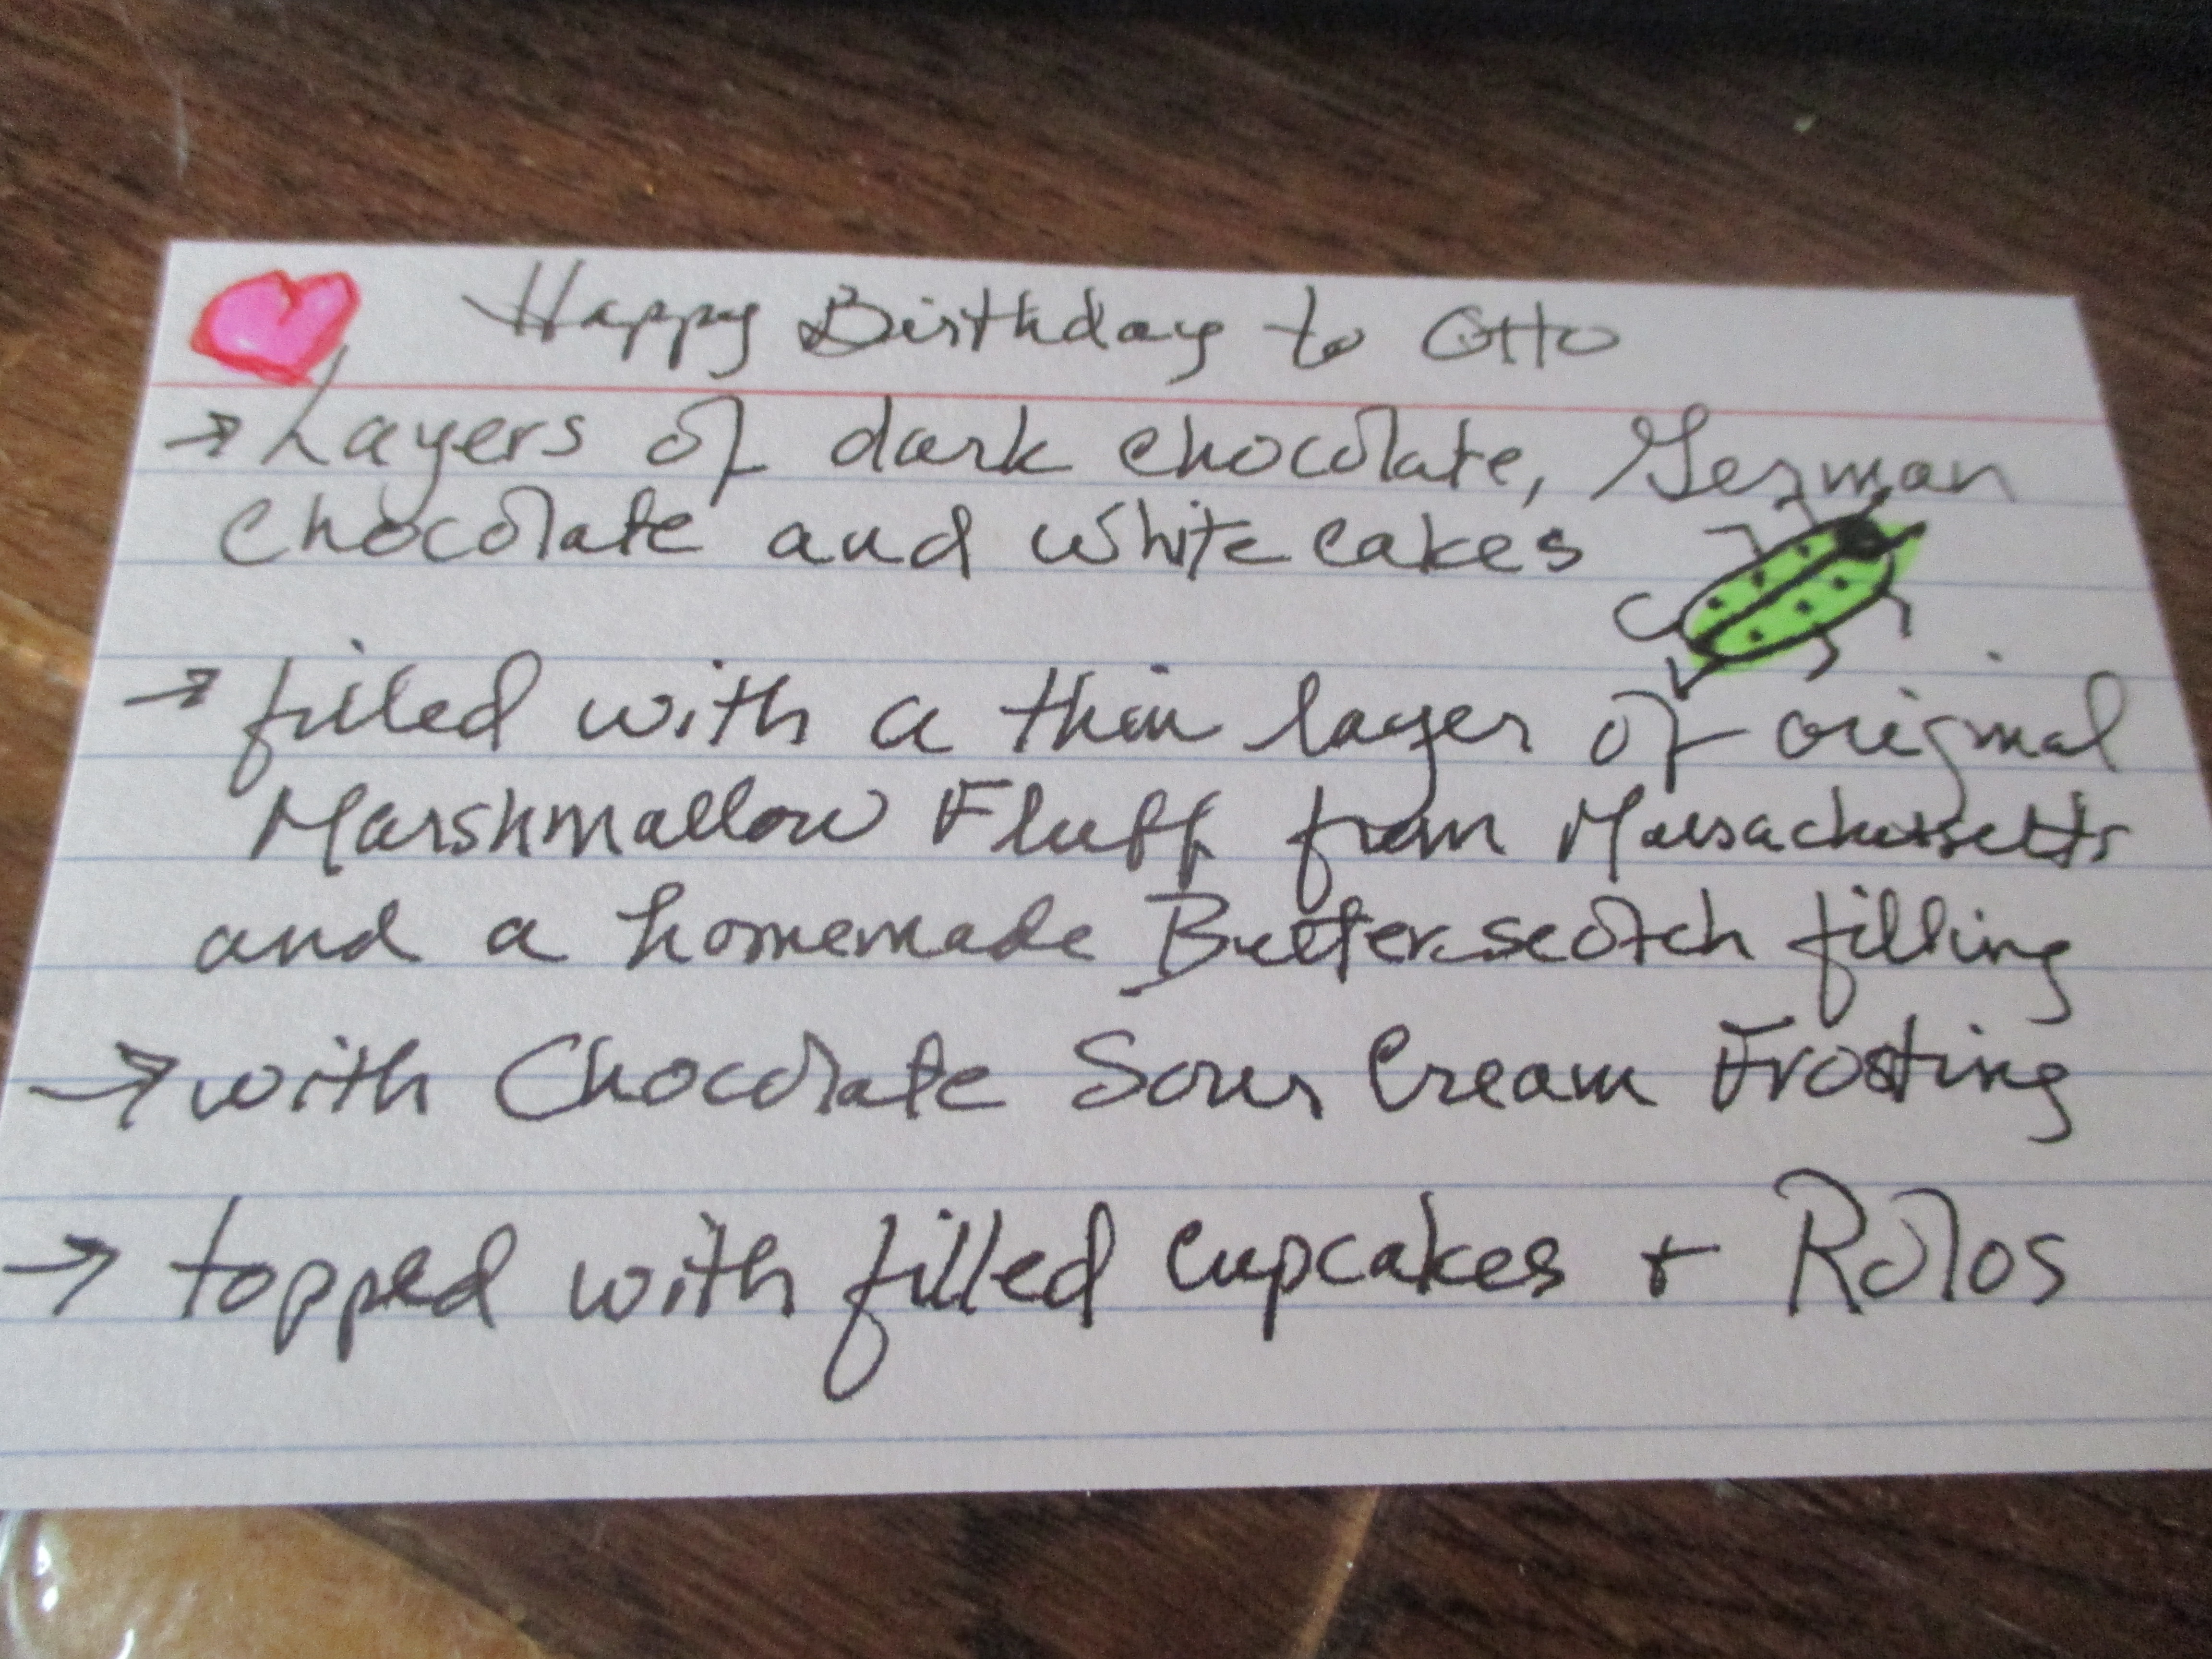 Happy Birthday to Otto
→ Layers of dark chocolate, German
Chocolate and white cakes
→ filled with a thin layer of original
Marshmallow Fluff from Massachussetts
and a homemade Butterscotch filling
→ with Chocolate Sour Cream Frosting
→ topped with filled cupcakes + Rolos